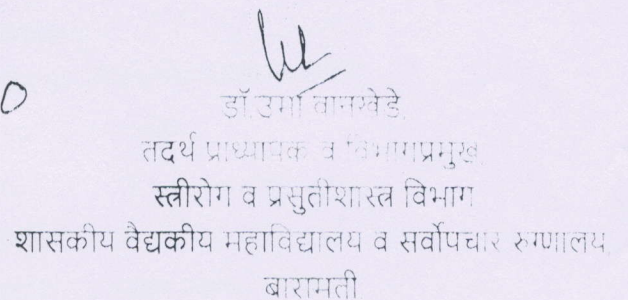 डॉ.उमा वानखेडे,
तदर्थ प्राध्यापक व विभागप्रमुख,
स्त्रीरोग व प्रसुतीशास्त्र विभाग
शासकीय वैद्यकीय महाविद्यालय व सर्वोपचार रुग्णालय,
बारामती